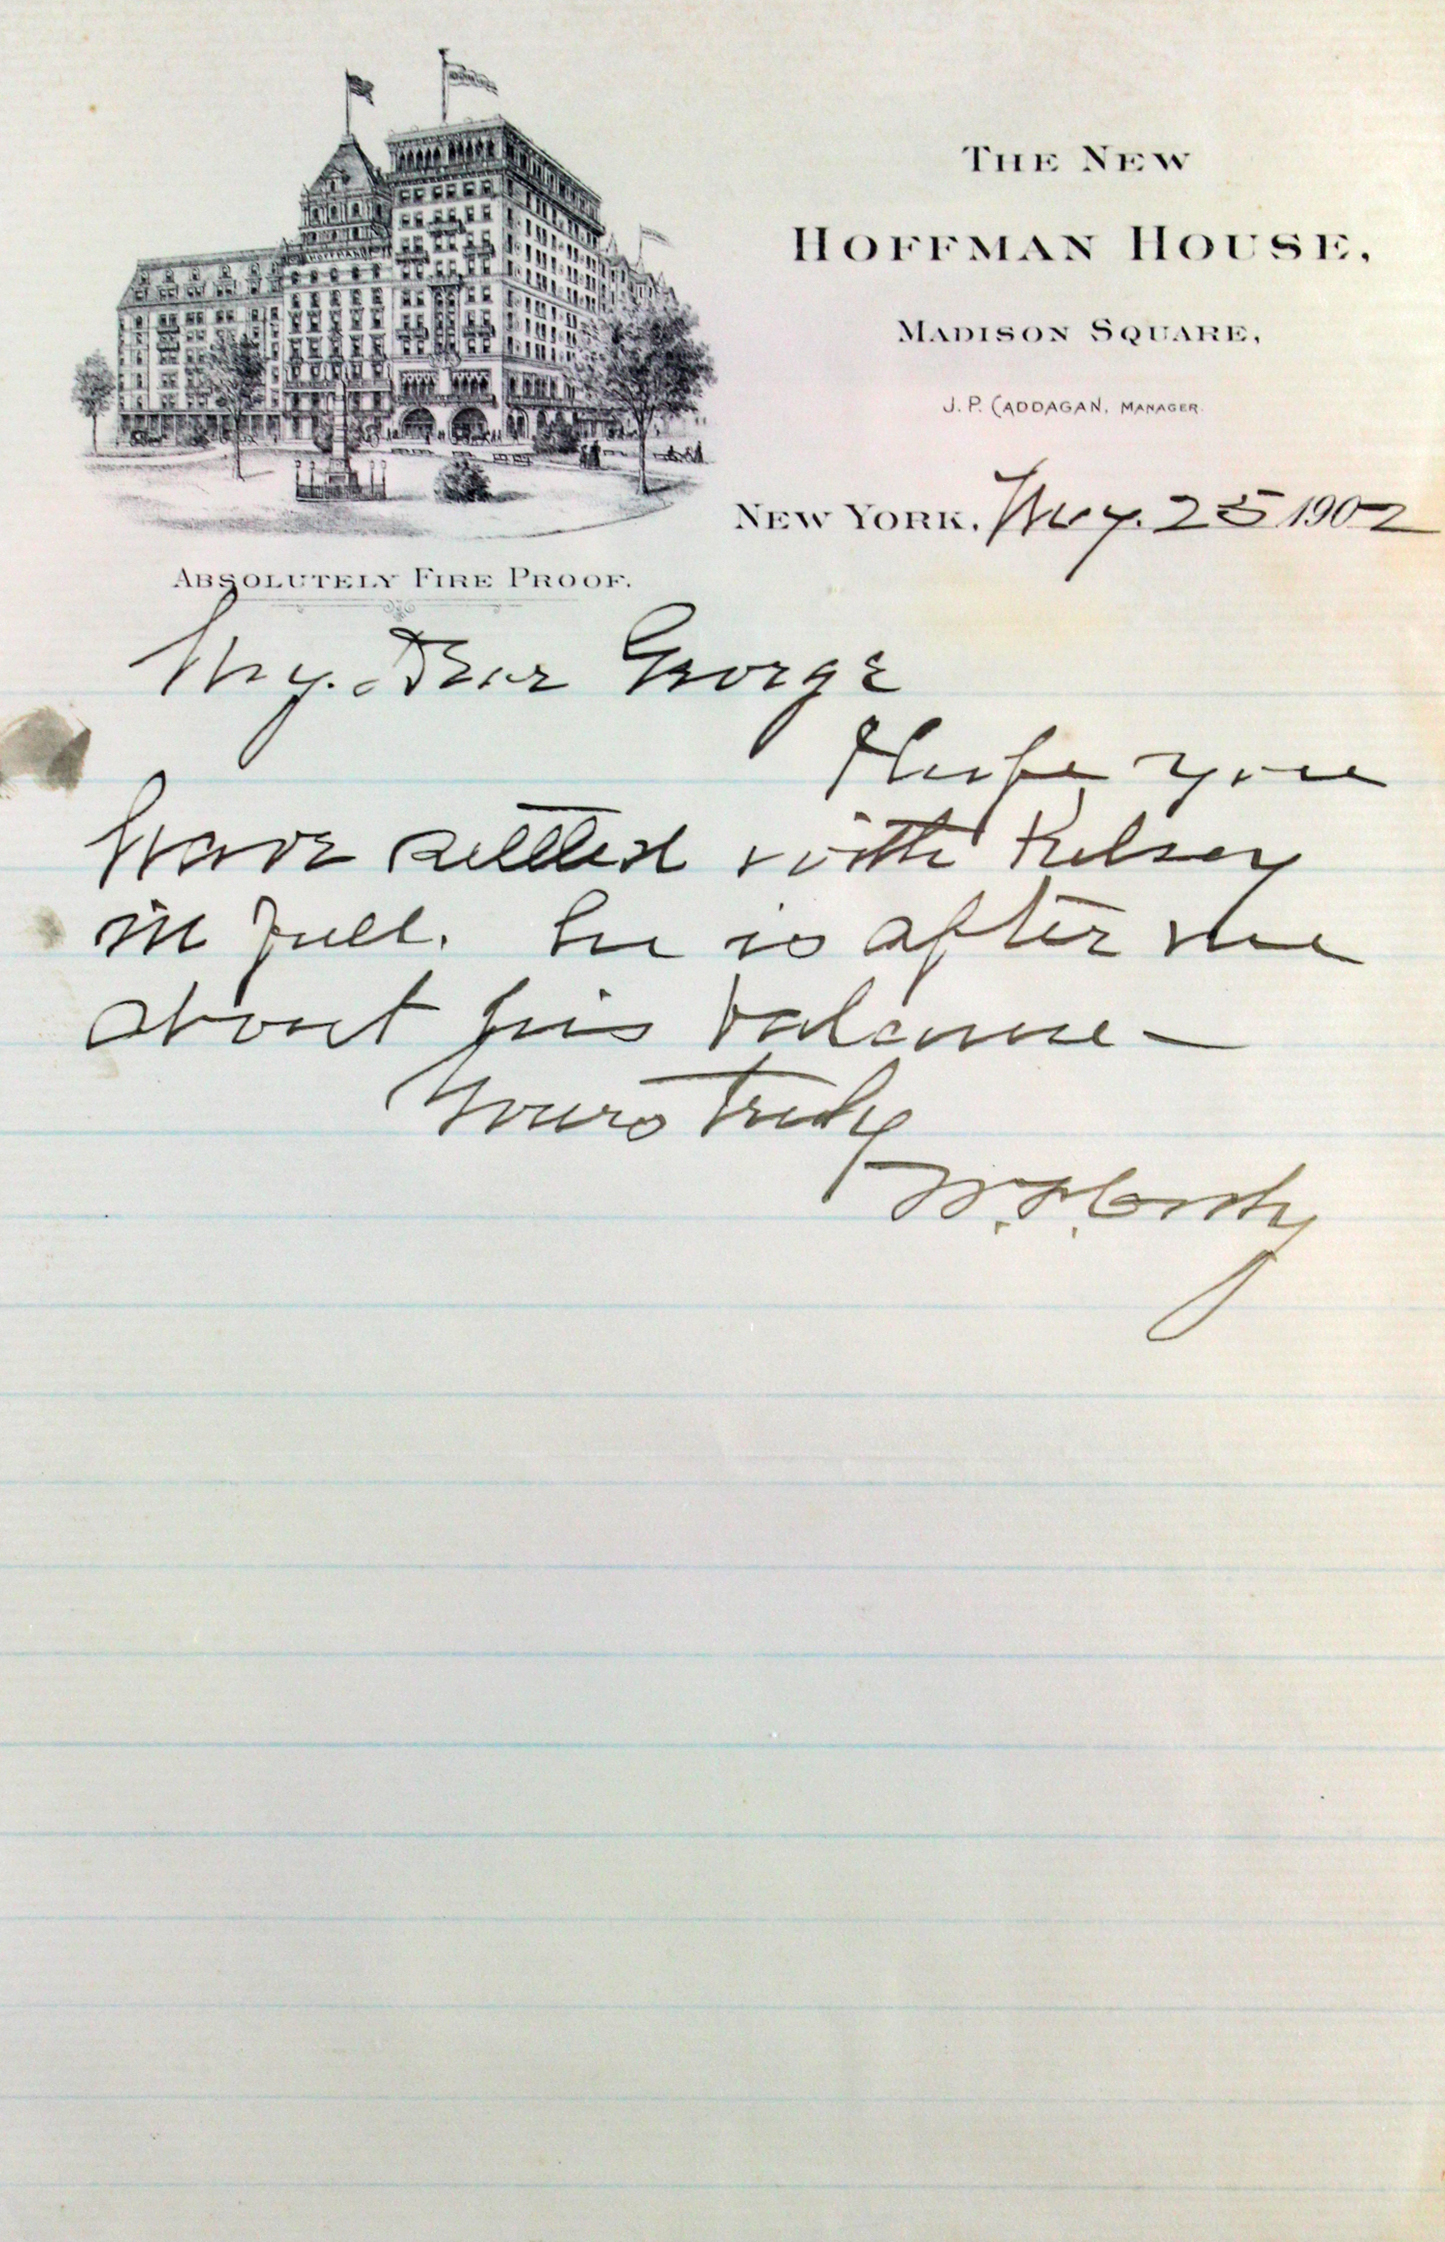 The New
Hoffman House,
Madison Square,
J. P. Caddagan, Manager.
New York, May. 25 1902
Absolutely Fire Proof.
My. Dear George
Hope you
have settled with Kelsey
in full. he is after me
about his balance —
Yours truly
W. F. Cody